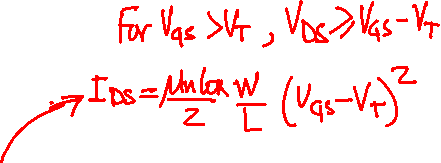 for V_GS > V_T , V_DS ⩾ V_GS - V_T
I_DS = μnCox/2 W/L (V_GS - V_T)^2